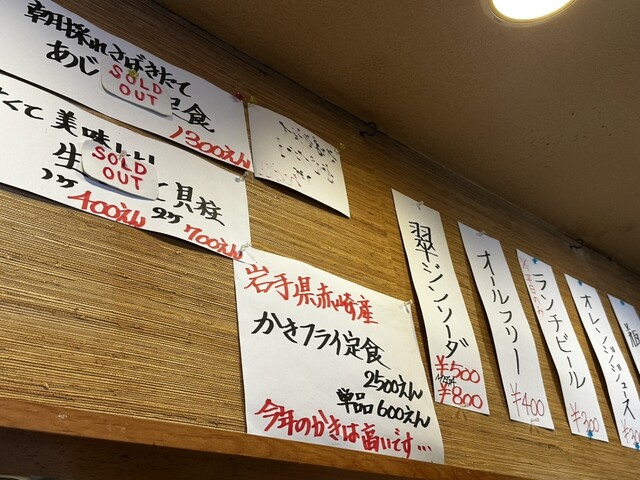 朝採れさばきたて
あじ
SOLD
OUT
定食
1300えん
くて美味しい
生
SOLD
OUT
て貝柱
1ケ400えん 2ケ700えん
岩手県赤崎産
かきフライ定食
2500えん
単品600えん
今年のかきは高いです…
翠ジンソーダ
¥500
¥800
オールフリー
¥400
ランチビール
¥300
オレンジジュース